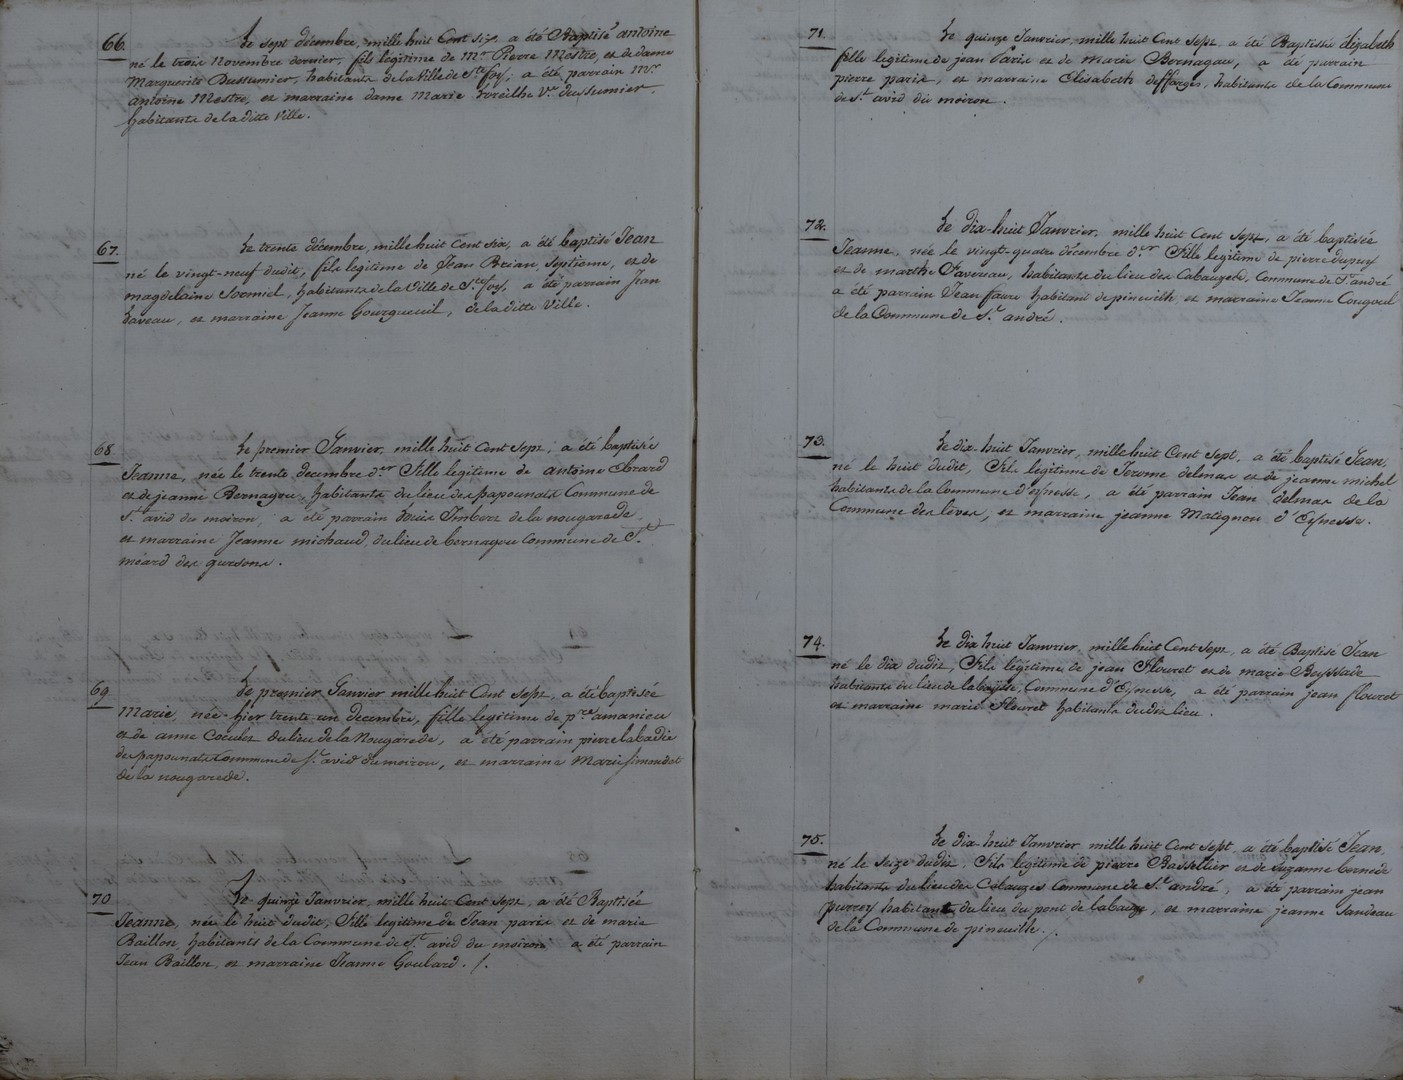 66.
Le sept décembre, mille huit Cent six, a été Baptisé antoine
né le trois novembre dernier, fils legitime de Mr Pierre Mestre, et de dame
Marguerite Dussumier, habitants de la Ville de Ste foy, a été parrain Mr
antoine Mestre, et marraine dame Marie Ve dussumier,
habitants de la ditte Ville.
67.
Le trente décembre, mille huit Cent six, a été baptisé Jean
né le vingt-neuf dudit, fils legitime de Jean Brian, Septieme, et de
magdelaine habitants de la Ville de Ste foy, a été parrain Jean
Laveau, et marraine Jeanne Gourgueuil, de la ditte Ville.
68
Le premier Janvier, mille huit Cent Sept, a été baptisée
Jeanne, née le trente decembre der fille legitime de antoine Ebrard
et de jeanne Bernagou, habitants du lieu des papounats Commune de
St avid du moiron, a été parrain Louis Imbert de la nougarede,
et marraine Jeanne michaud, du lieu de bernagou Commune de St
meard des gursons.
69
Le premier Janvier mille huit Cent Sept, a été baptisée
Marie, née hier trente un decembre, fille legitime de pre amanieu
et de anne Coculet du lieu de la Nougarede, a été parrain pierre labadie
des papounats Commune de St avid du moiron, et marraine Marie Simondet
de la nougarede.
70
Le quinze Janvier, mille huit Cent Sept, a été Baptisée
Jeanne, née le huit dudit, fille legitime de Jean paris et de marie
Baillon, habitants de la Commune de St avid du moiron, a été parrain
Jean Baillon, et marraine Jeanne Goulard. /.
71.
Le quinze Janvier, mille huit Cent Sept, a été Baptisée élizabeth
fille legitime de jean Paris et de Marie Bernagau, a été parrain
pierre paris, et marraine Elisabeth deffarges, habitants de la Commune
de St avid du moiron.
72.
Le dix-huit Janvier, mille huit Cent Sept, a été baptisée
Jeanne, née le vingt-quatre décembre der fille legitime de pierre dupuy
et de marthe Favereau, habitants du lieu des Cabauzes, Commune de St andré
a été parrain Jean faure habitant de pineuilh, et marraine Jeanne Cougoul
de la Commune de St andré.
73.
Le dix-huit Janvier, mille huit Cent Sept, a été baptisé Jean,
né le huit dudit, Fils legitime de Jerome delmas et de jeanne michel
habitants de la Commune d'eynesse, a été parrain Jean delmas de la
Commune des lèves, et marraine jeanne Matignon d'Eynesse.
74.
Le dix huit Janvier, mille huit Cent Sept, a été Baptisé Jean
né le dix dudit, Fils legitime de jean Flouret et de marie Beyssade
habitants du lieu de Commune d'Eynesse, a été parrain jean flouret
et marraine marie Flouret habitants dudit lieu.
75.
Le dix huit Janvier mille huit Cent Sept, a été baptisé Jean,
né le seize dudit, Fils legitime de pierre Bassellier et de Suzanne bernede
habitants du lieu des Cabauzes Commune de St andré, a été parrain jean
purrey habitant du lieu du pont de et marraine jeanne Sandeau
de la Commune de pineuille. /.